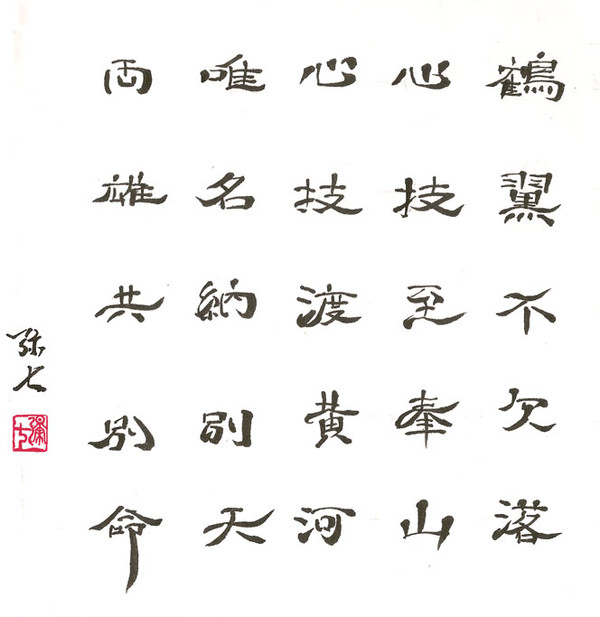 鶴翼不欠落
心技至奉山
心技渡黄河
唯名納別天
両雄共別命
弥七